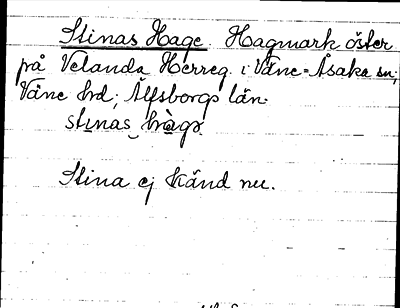 Stinas Hage. Hagmark öster
på Velanda Herreg. i Väne-Åsaka sn;
Väne hrd; Älfsborgs län.
stinas
Stina ej känd nu.